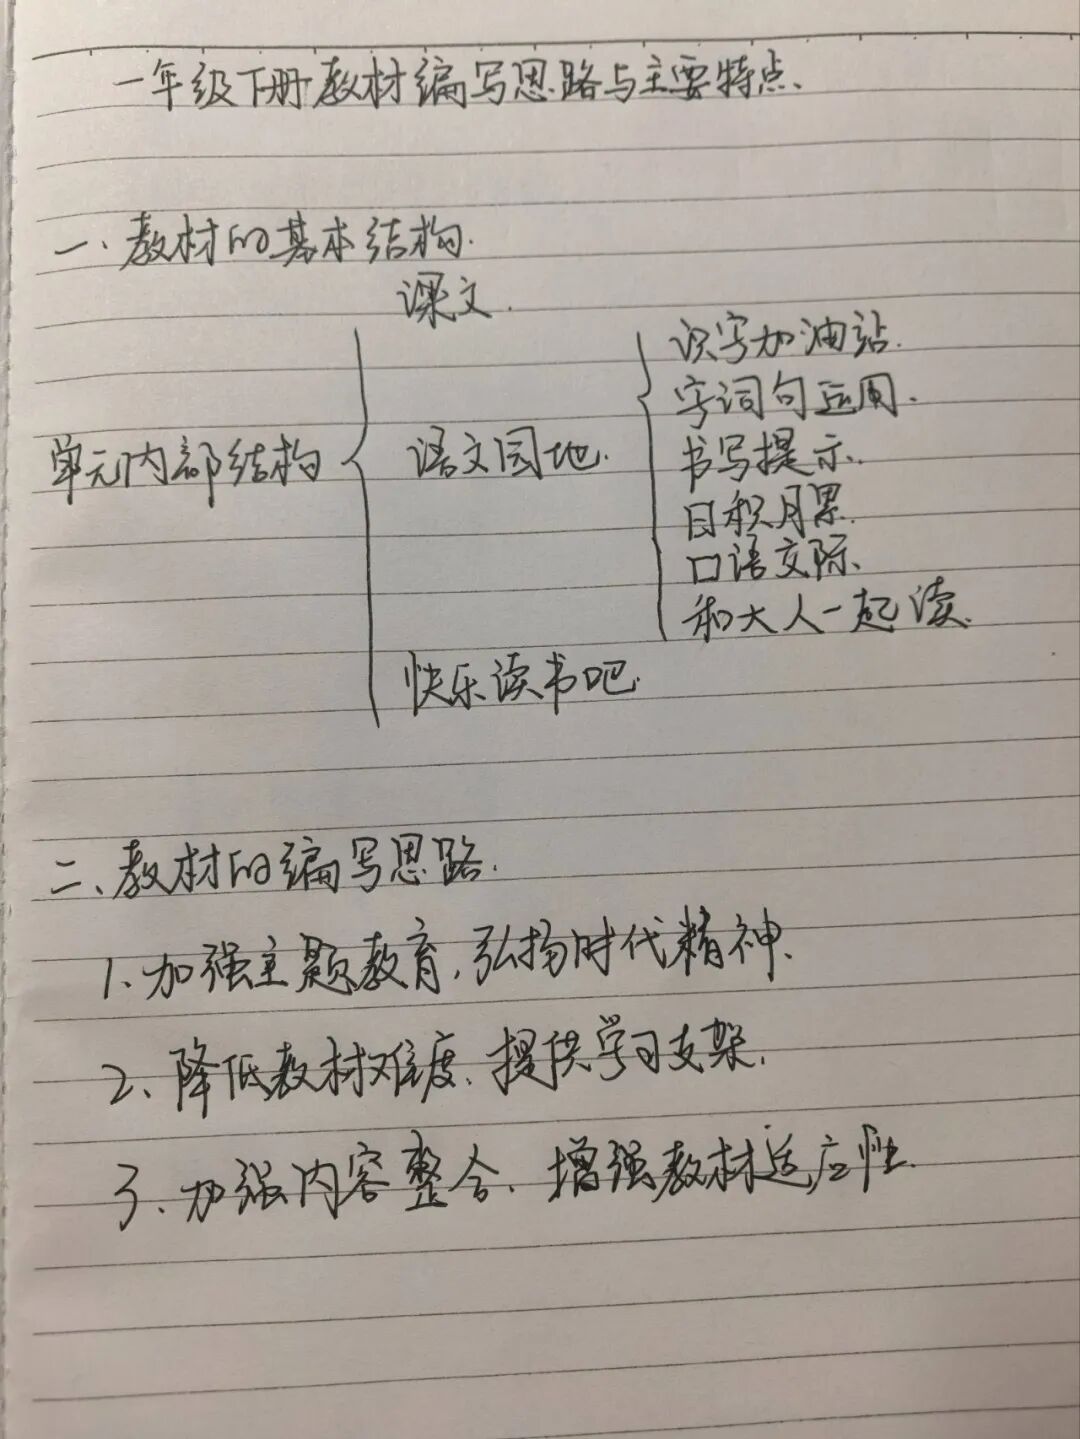 一年级下册教材编写思路与主要特点、
一、教材的基本结构.
课文.
识字加油站.
字词句运用.
单元内部结构
语文园地.
书写提示.
日积月累.
口语交际、
和大人一起读.
快乐读书吧.
二、教材的编写思路.
1、加强主题教育,弘扬时代精神、
2、降低教材难度、提供学习支架.
3、加强内容整合、增强教材适应性.